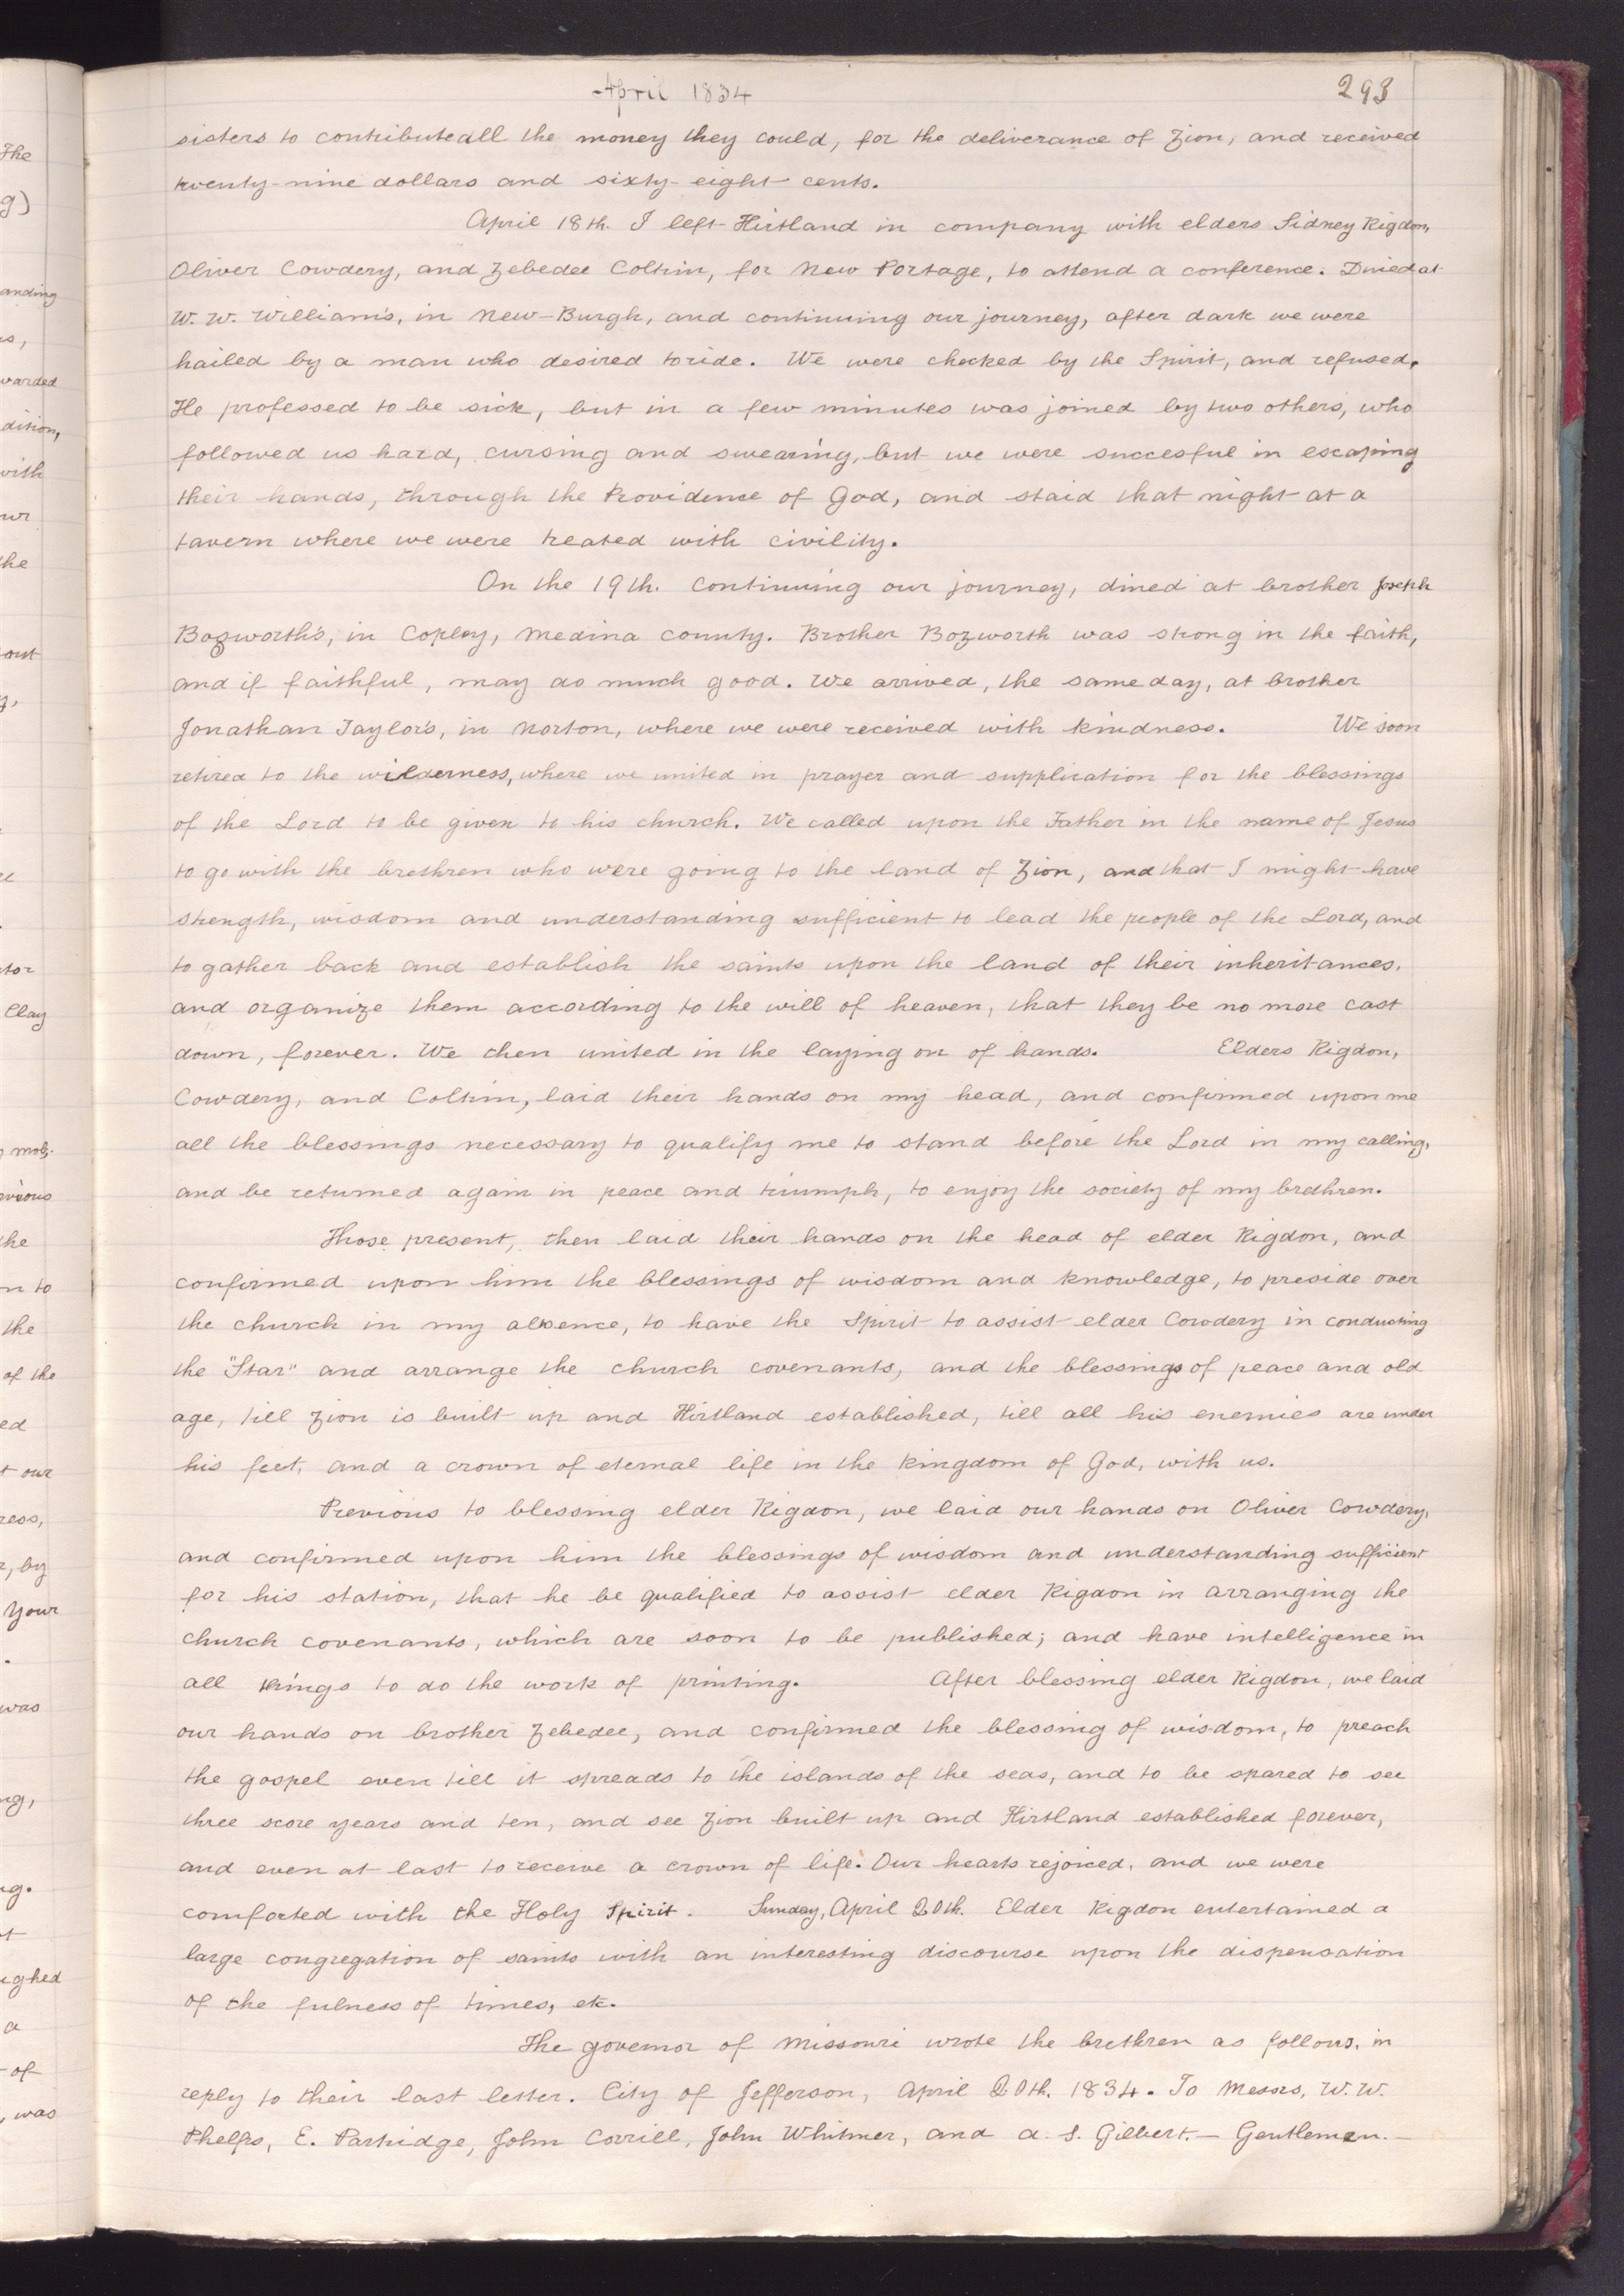 April 1834
293
sisters to contribute all the money they could, for the deliverance of Zion, and received
twenty-nine dollars and sixty-eight cents.
April 18th. I left Kirtland in company with elders Sidney Rigdon,
Oliver Cowdery, and Zebedee Coltrin, for New Portage, to attend a conference. Dined at
W. W. William's, in New-Burgh, and continuing our journey, after dark we were
hailed by a man who desired to ride. We were checked by the Spirit, and refused,
He professed to be sick, but in a few minutes was joined by two others, who
followed us hard, cursing and swearing, but we were succesful in escaping
their hands, through the Providence of God, and staid that night at a
tavern where we were treated with civility.
On the 19th. continuing our journey, dined at brother Joseph
Bozworth's, in Copley, Medina county. Brother Bozworth was strong in the faith,
and if faithful, may do much good. We arrived, the same day, at brother
Jonathan Taylor's, in Norton, where we were received with kindness. We soon
retired to the wilderness, where we united in prayer and supplication for the blessings
of the Lord to be given to his church. We called upon the Father in the name of Jesus
to go with the brethren who were going to the land of Zion, and that I might have
strength, wisdom and understanding sufficient to lead the people of the Lord, and
to gather back and establish the saints upon the land of their inheritances,
and organize them according to the will of heaven, that they be no more cast
down, forever. We then united in the laying on of hands. Elders Rigdon,
Cowdery, and Coltrin, laid their hands on my head, and confirmed upon me
all the blessings necessary to qualify me to stand before the Lord in my calling,
and be returned again in peace and triumph, to enjoy the society of my brethren.
Those present, then laid their hands on the head of elder Rigdon, and
confirmed upon him the blessings of wisdom and knowledge, to preside over
the church in my absence, to have the Spirit to assist elder Cowdery in conducting
the "Star" and arrange the church covenants, and the blessings of peace and old
age, till Zion is built up and Kirtland established, till all his enemies are under
his feet, and a crown of eternal life in the kingdom of God, with us.
Previous to blessing elder Rigdon, we laid our hands on Oliver Cowdery,
and confirmed upon him the blessings of wisdom and understanding sufficient
for his station, that he be qualified to assist elder Rigdon in arranging the
church covenants, which are soon to be published; and have intelligence in
all things to do the work of printing. After blessing elder Rigdon, we laid
our hands on brother Zebedee, and confirmed the blessing of wisdom, to preach
the gospel even till it spreads to the islands of the seas, and to be spared to see
three score years and ten, and see Zion built up and Kirtland established forever,
and even at last to receive a crown of life. Our hearts rejoiced, and we were
comforted with the Holy Spirit. Sunday, April 20th. Elder Rigdon entertained a
large congregation of saints with an interesting discourse upon the dispensation
of the fulness of times, etc.
The governor of Missouri wrote the brethren as follows, in
reply to their last letter. City of Jefferson, April 20th. 1834. To Messrs, W. W.
Phelps, E. Partridge, John Corrill, John Whitmer, and A. S. Gilbert.— Gentlemen.—